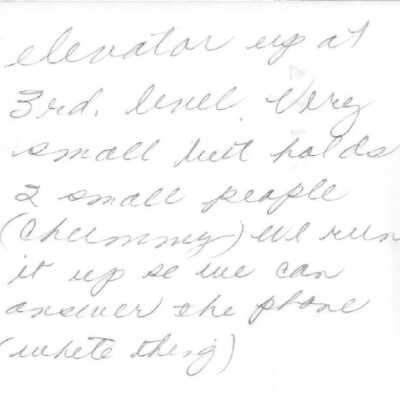 elevator up at
3rd. level. Very
small but holds
2 small people
(chummy) we run
it up so we can
answer the phone
(white thing)